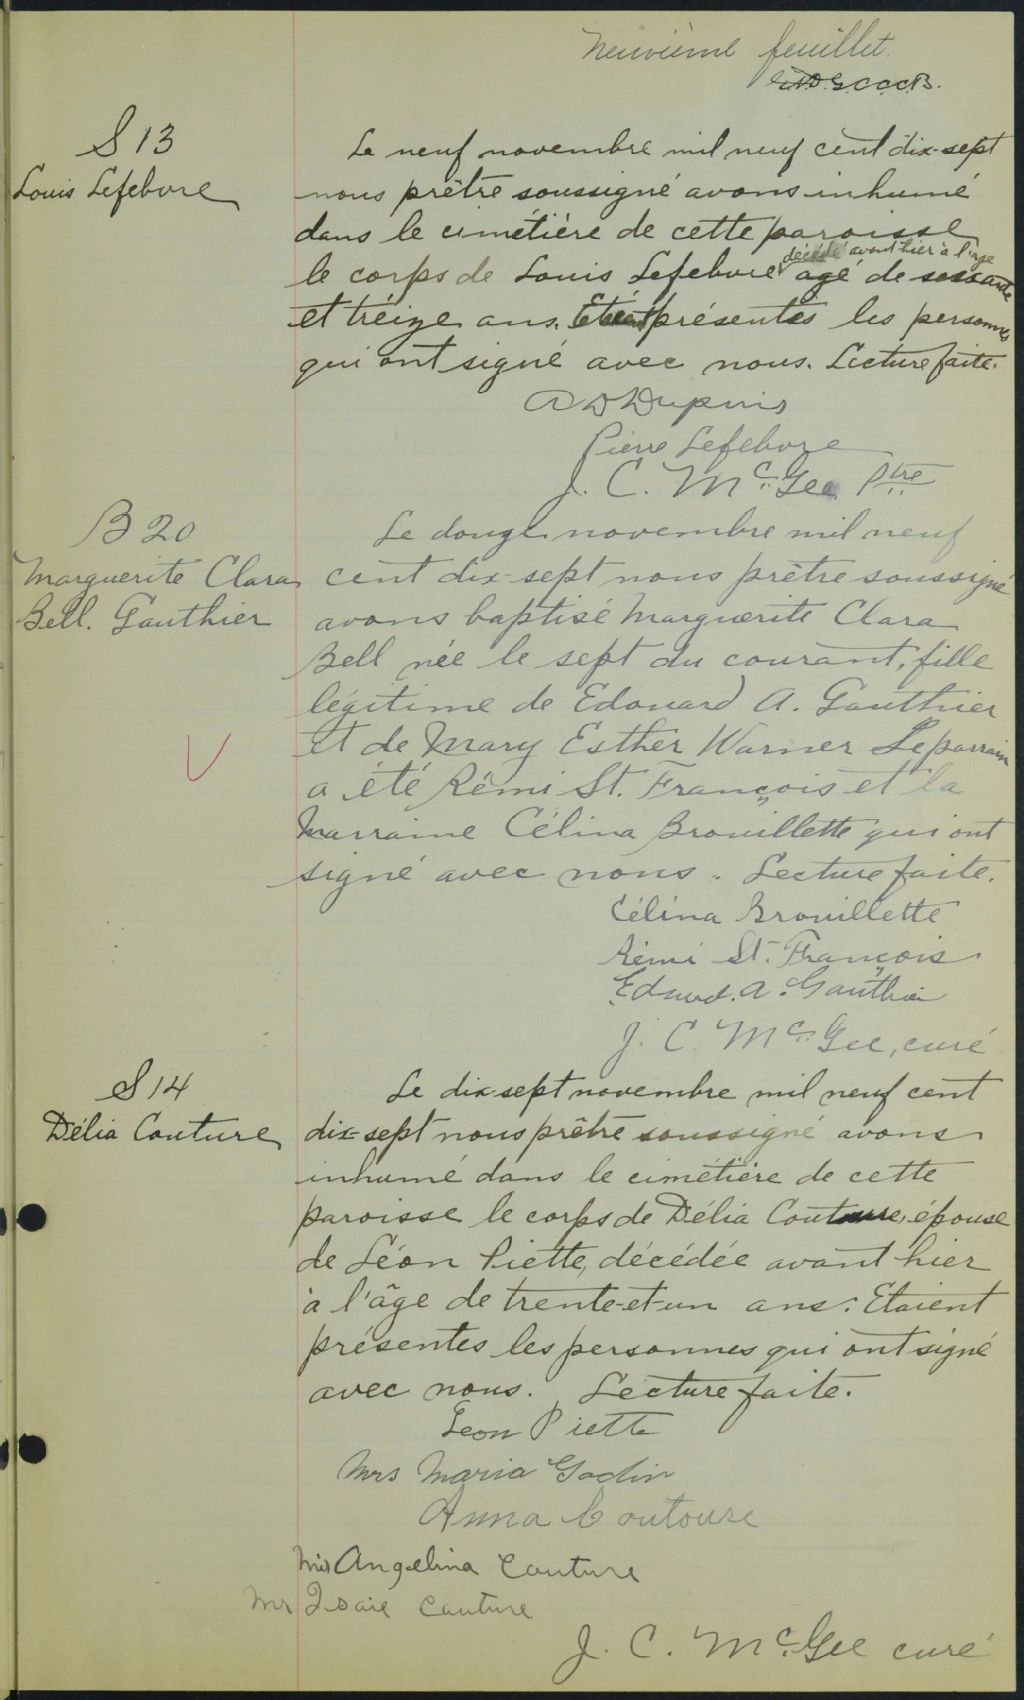 Neuvième feuillet.
S 13
Louis Lefebvre
Le neuf novembre mil neuf cent dix-sept
nous prêtre soussigné avons inhumé
dans le cimetière de cette paroisse
décédé avant hier à l'age
le corps de Louis Lefebvre agé de soixante
et treize ans. Etaient présentes les personnes
qui ont signé avec nous. Lecture faite.
A D Dupuis
Pierre Lefebvre
J. C. McGee Ptre
B 20
Marguerite Clara
Bell. Gauthier
Le douze novembre mil neuf
cent dix-sept nous prêtre soussigné
avons baptisé Marguerite Clara
Bell née le sept du courant, fille
légitime de Edouard A. Gauthier
et de Mary Esther Warner Le parrain
a été Rémi St. François et la
Marraine Célina Brouillette qui ont
signé avec nous. Lecture faite.
Célina Brouillette
Rémi St. François
A. Gauthier
J. C. McGee, curé
S 14
Délia Couture
Le dix-sept novembre mil neuf cent
dix-sept nous prêtre soussigné avons
inhumé dans le cimétière de cette
paroisse le corps de Délia Couture, épouse
de Léon Piette, décédée avant hier
à l'âge de trente-et-un ans. Etaient
présentes les personnes qui ont signé
avec nous. Lecture faite.
Leon Piette
Mrs Maria Godin
Anna Coutoure
Mis Angelina Couture
Mr Isaie Couture
J. C. McGee curé